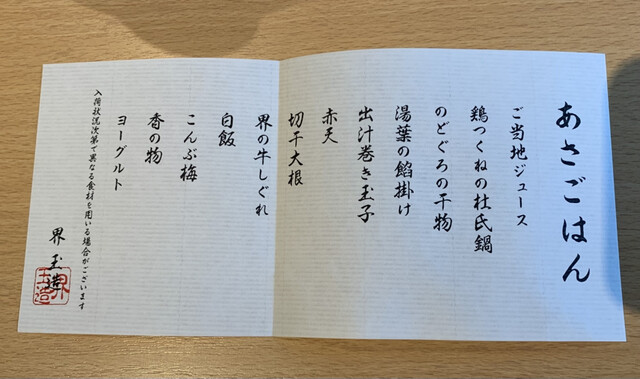 あさごはん
ご当地ジュース
鶏つくねの杜氏鍋
のどぐろの干物
湯葉の餡掛け
出汁巻き玉子
赤天
切干大根
界の牛しぐれ
白飯
こんぶ梅
香の物
ヨーグルト
入荷状況次第で異なる食材を用いる場合がございます
界 玉造
界玉造